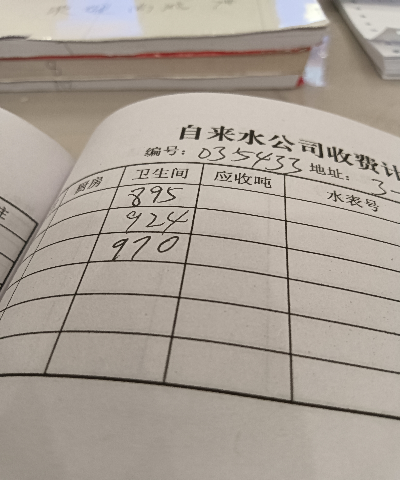 自来水公司收费
编号：035433 地址：3
厨房 卫生间 应收吨 水表号
895
924
970